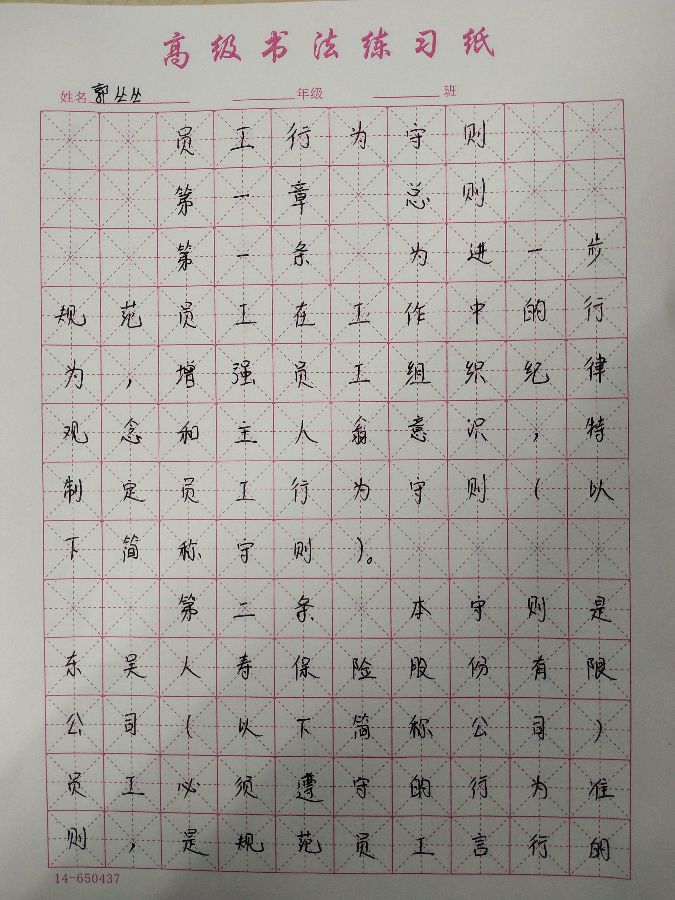 高级书法练习纸
姓名 郭丛丛 年级 班
员工行为守则
第一章 总则
第一条 为进一步
规范员工在工作中的行
为，增强员工组织纪律
观念和主人翁意识，特
制定员工行为守则（以
下简称守则）。
第二条 本守则是
东吴人寿保险股份有限
公司（以下简称公司）
员工必须遵守的行为准
则，是规范员工言行的
14-650437